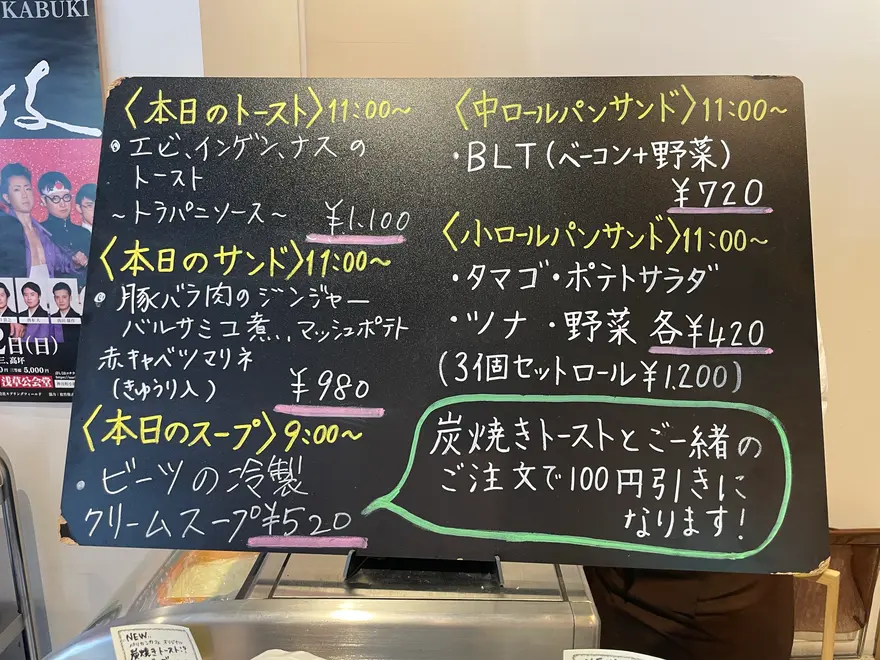 KABUKI
〈本日のトースト〉11:00〜
・エビ、インゲン、ナスの
トースト
〜トラパニソース〜 ¥1.100
〈本日のサンド〉11:00〜
・豚バラ肉のジンジャー
バルサミコ煮、マッシュポテト
赤キャベツマリネ
(きゅうり入) ¥980
〈本日のスープ〉9:00〜
・ビーツの冷製
クリームスープ¥520
〈中ロールパンサンド〉11:00〜
・BLT(ベーコン+野菜)
¥720
〈小ロールパンサンド〉11:00〜
・タマゴ・ポテトサラダ
・ツナ ・野菜 各¥420
(3個セットロール¥1.200)
炭焼きトーストとご一緒の
ご注文で100円引きに
なります!
日(日)
5,000円
浅草公会堂
NEW
炭焼きトースト